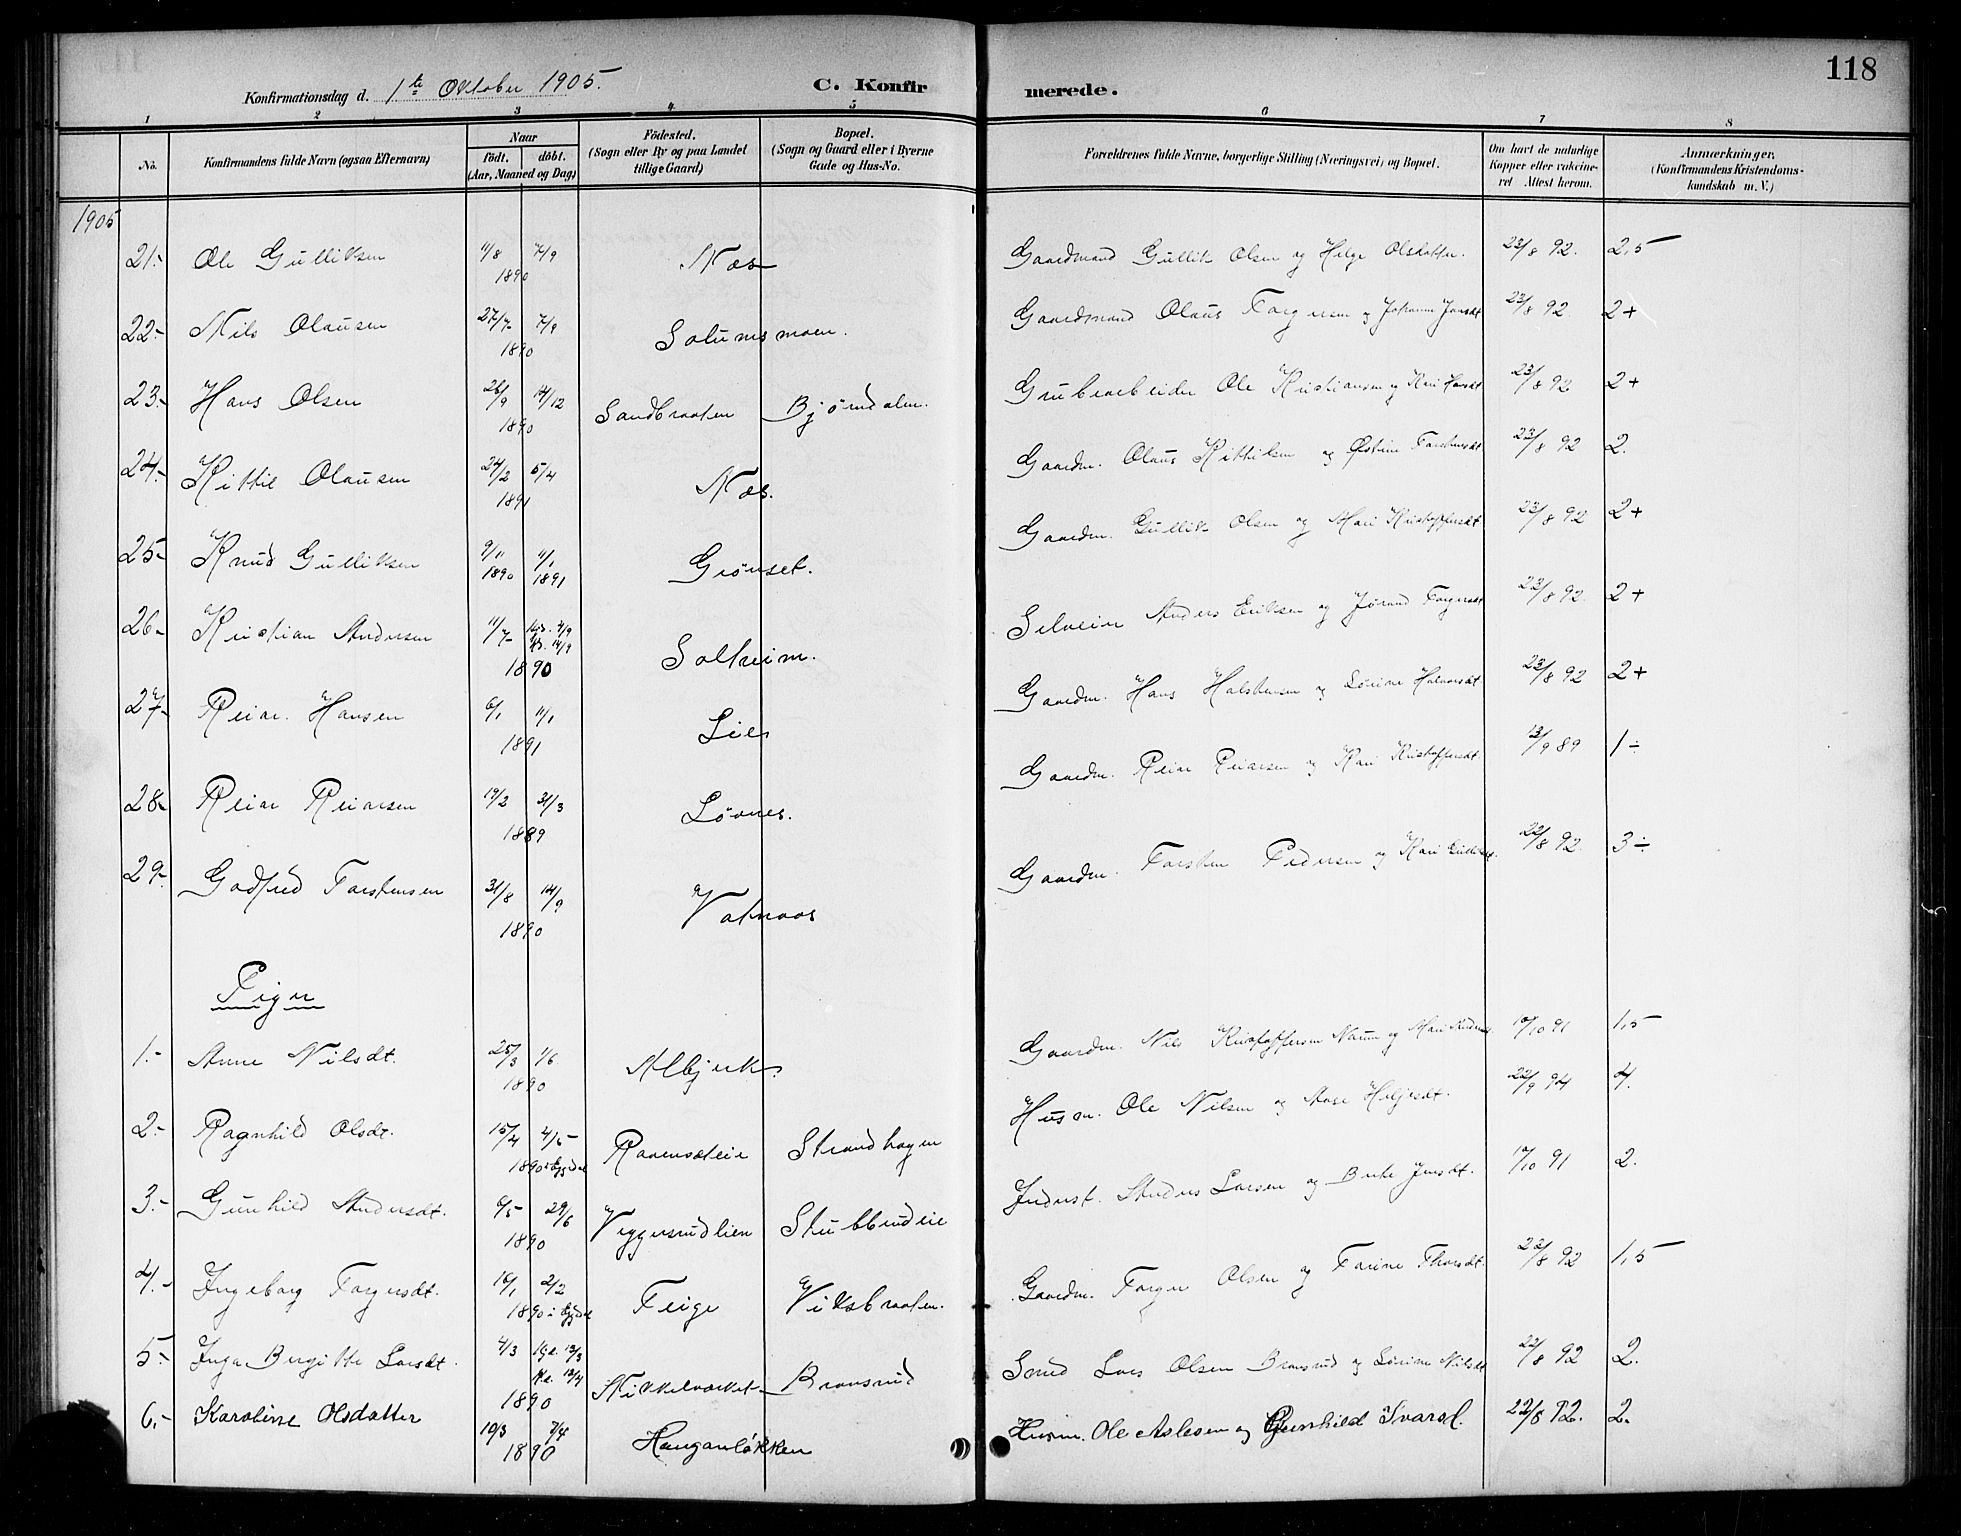 118
Konfirmationsdag d. 1te Oktober 1905. C. Konfirmerede.
1 2 3 4 5 6 7 8
No. Konfirmandens fulde Navn (ogsaa Efternavn) Naar født. døbt. (Aar, Maaned og Dag) Fødested. (Sogn eller By og paa Landet tillige Gaard) Bopæl. (Sogn og Gaard eller i Byerne Gade og Hus-No. Forældrenes fulde Navne, borgerlige Stilling (Næringsvei) og Bopæl. Om havt de naturlige Kopper eller vakcineret Attest herom. Anmærkninger. (Konfirmandens Kristendomskundskab m. V.)
1905
21.- Ole Gulliksen 11/8 7/9 1890 Næs Gaardmand Gullik Olsen og Helge Olsdatter. 23/8 92. 2,5
22- Nils Olausen 27/7- 7/9 1890 Solumsmoen. Gaardmand Olaus Torgersen og Johanne Jensdt 23/8 92. 2+
23.- Hans Olsen 26/9 14/12 1890 Sandbraaten Bjørndalen. Grubearbeider Ole Kristiansen og Kari Hansdt 23/8 92 2+
24.- Kittil Olausen 24/2 5/4 1891 Næs. Gaardm. Olaus Kittilsen og Østine Torstensdt 23/8 92 2.
25- Knud Gulliksen 9/11 1890 11/1 1891 Grønset. Gaardm. Gullik Olsen og Mari Kristoffersdt 23/8 92 2+
26- Kristian Andersen 11/7- 7/9 14/9 1890 Solheim. Selveier Anders Eriksen og Jørand Torgersdt 22/8 92. 2+
27- Reiar Hansen 6/1 11/1 1891 Lie Gaardm. Hans Halstensen og Lorine Halvorsdt 23/8 92 2+
28- Reiar Reiarsen 19/2 31/3 1889 Løvnes. Gaardm. Reiar Reiarsen og Kari Kristoffersdt 13/9 89 1÷
29- Godfred Torstensen 31/8 14/9 1890 Vatnaas Gaardm. Torsten Pedersen og Kari Gulliksdt. 22/8 92. 3÷
Piger
1.- Anne Nilsdt. 25/3 1/6 1890 Albjerk. Gaardm. Nils Kristoffersen Narum og Mari 19/10 91 1,5
2.- Ragnhild Olsdt. 15/4 4/5- 1890 i Eggedal Ravnsæteie Strandhagen Husm. Ole Nilsen og Aase Heljesdt. 22/9 94 4.
3.- Gunhild Andersdt. 6/5 29/6 1890 Viggersudlien Stubberudeie Inderst. Anders Larsen og Berte Jensdt. 19/10 91 2.
4.- Ingeborg Torgersdt. 16/1 2/2 1890 i Eggedal Teige Viksbraaten. Gaardm. Torger Olsen og Torine Thorsdt. 22/8 92 1,5
5.- Inga Birgitte Larsdt. 4/3 13/3 13/4 1890 Nikkelværket Bransrud Smed Lars Olsen Bransrud og Lorine Nilsdt 22/8 92 2.
6.- Karoline Olsdatter 10/3 7/4 1890 Hauganløkken Husm. Ole Aslesen og Gunhild Ivarsd. 22/8 92. 2.